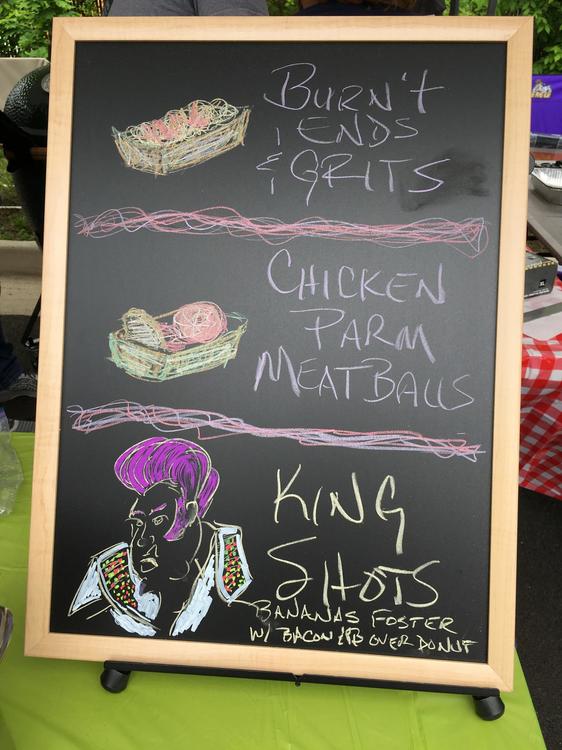 BURN'T
ENDS
& GRITS
CHICKEN
PARM
MEATBALLS
KING
SHOTS
BANANAS FOSTER
W/ BACON & PB OVER DONUT